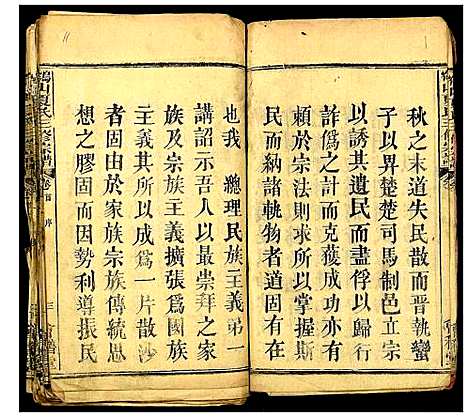 秋之末道失民散而晉執蠻
子以畀楚楚司馬制邑立宗
以誘其遺民而盡俘以歸行
詐為計而克獲成功亦有
賴於宗法則所以掌握斯
民而納諸軌物者道固有在
也我 總理民族主義第一
講詔示吾人以最崇拜之家
族及宗族主義擴張為國族
主義所以成為一片散沙
者固由於家族宗族傳統思
想之膠固而因勢利導振民
山夏氏三修宗譜
卷首 序